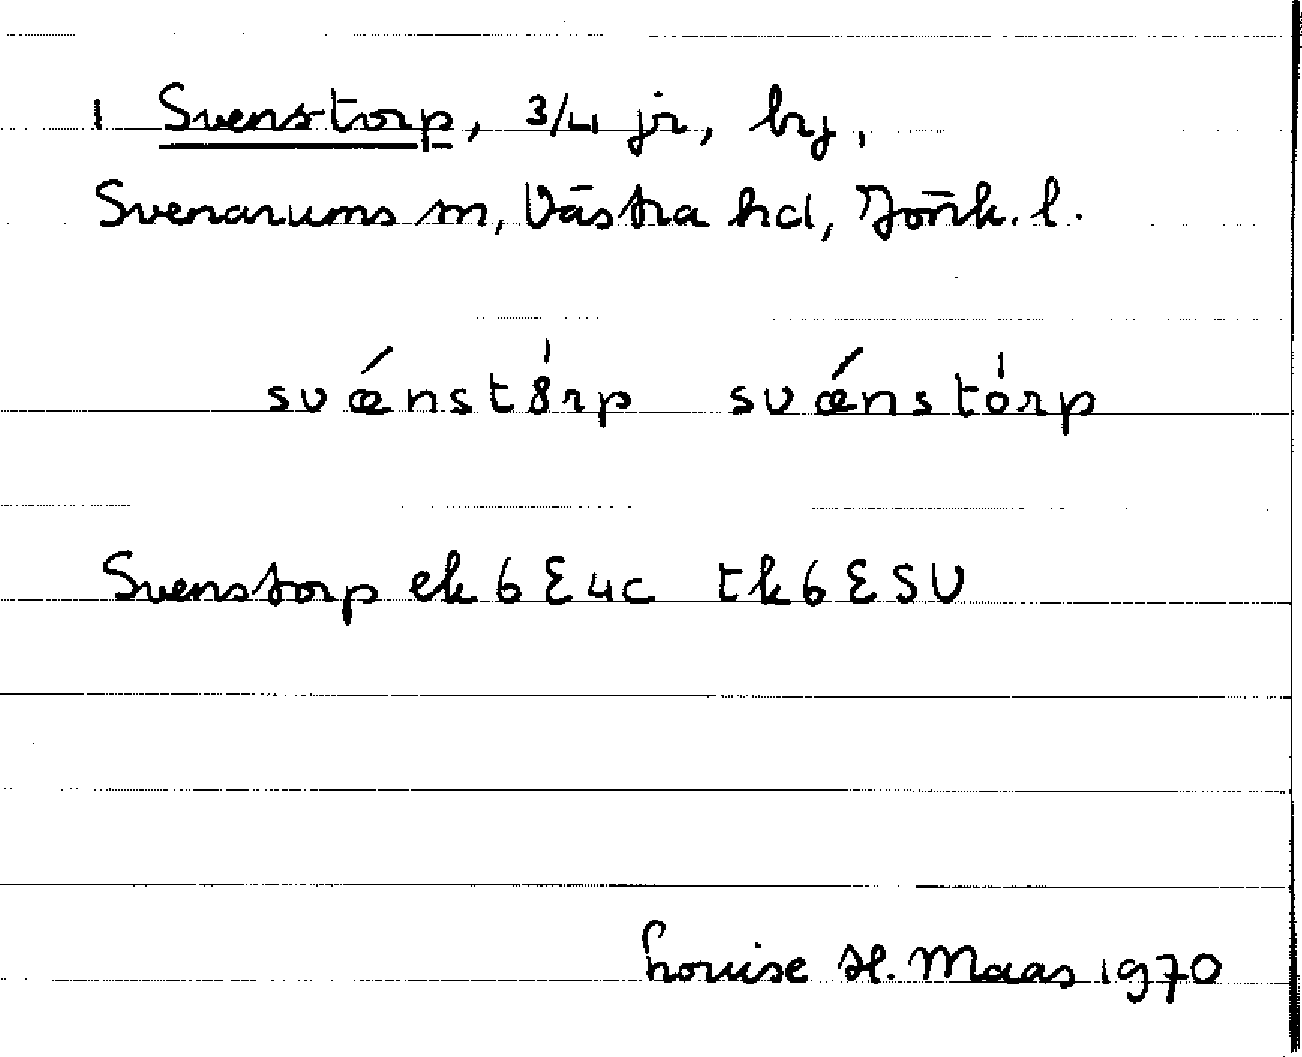 1 Svenstorp, 3/4 jr, by,
Svenarums sn, Västra hd, Jönk. l.
svǽnst8́rp svǽnstórp
Svenstorp ek 6E4c tk 6ESV
Louise H. Maas 1970